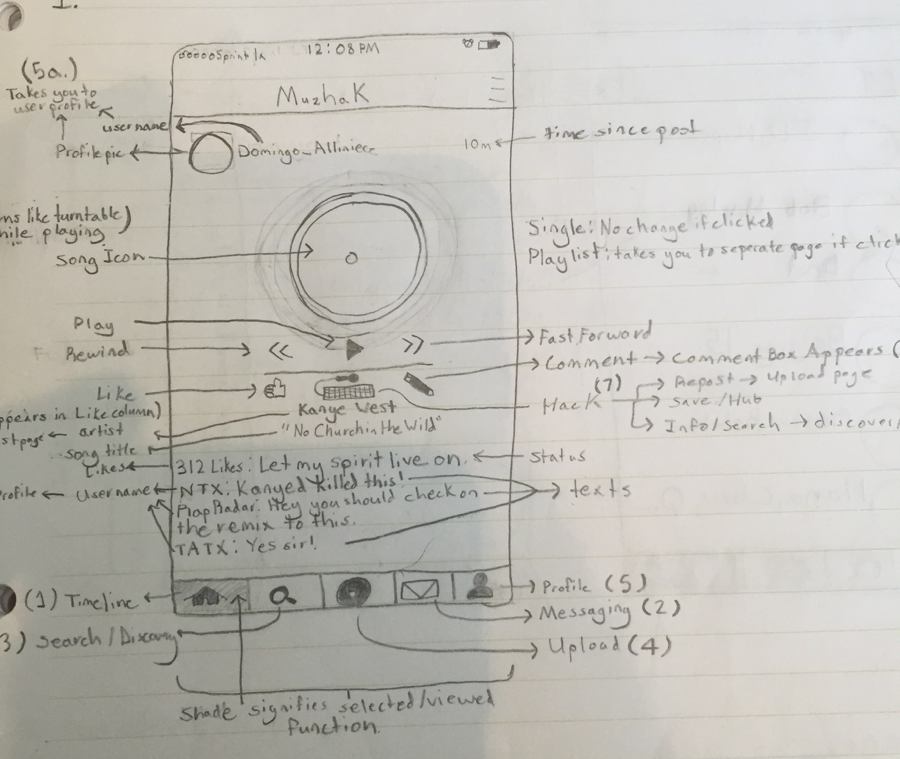 1.
ooooo Sprint LTE 12:08 PM
(5a.)
Takes you to
user profile
MuzhaK
username
Profile pic
Domingo_Alliniece
10m
time since post
ns like turntable)
hile playing
Song Icon
Single: No change if clicked
Playlist: takes you to seperate page if clic
Play
Rewind
Fast Forward
Comment → Comment Box Appears (
Like
(7)
Hack
Repost → Upload page
Save/Hub
Info/Search → discover/
ppears in Like column)
Kanye West
stpage ← artist
"No Church in the Wild"
song title
Likes
312 Likes: Let my spirit live on.
Status
rofile ← Username
NTX: Kanyed killed this!
RapRadar: Hey you should check on
the remix to this.
texts
TATX: Yes sir!
(1) Timeline
Profile (5)
3) Search/Discovery
Messaging (2)
Upload (4)
Shade signifies selected/viewed
function.